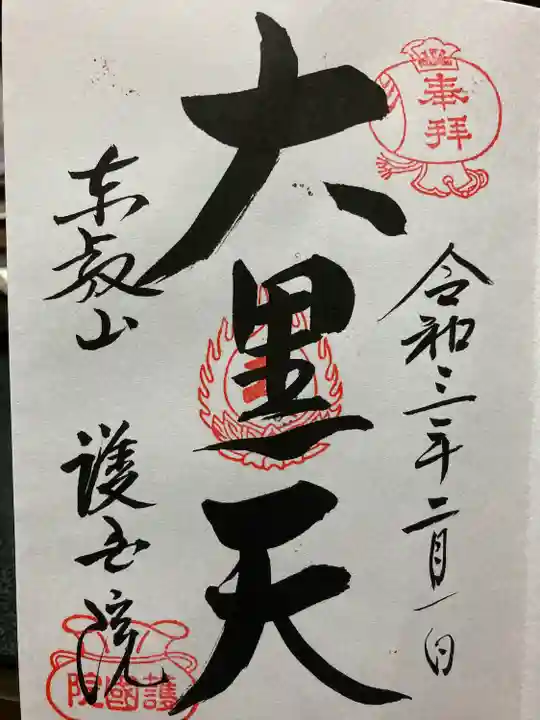 奉拝
令和三年二月一日
大黒天
東叡山 護国院
護國院